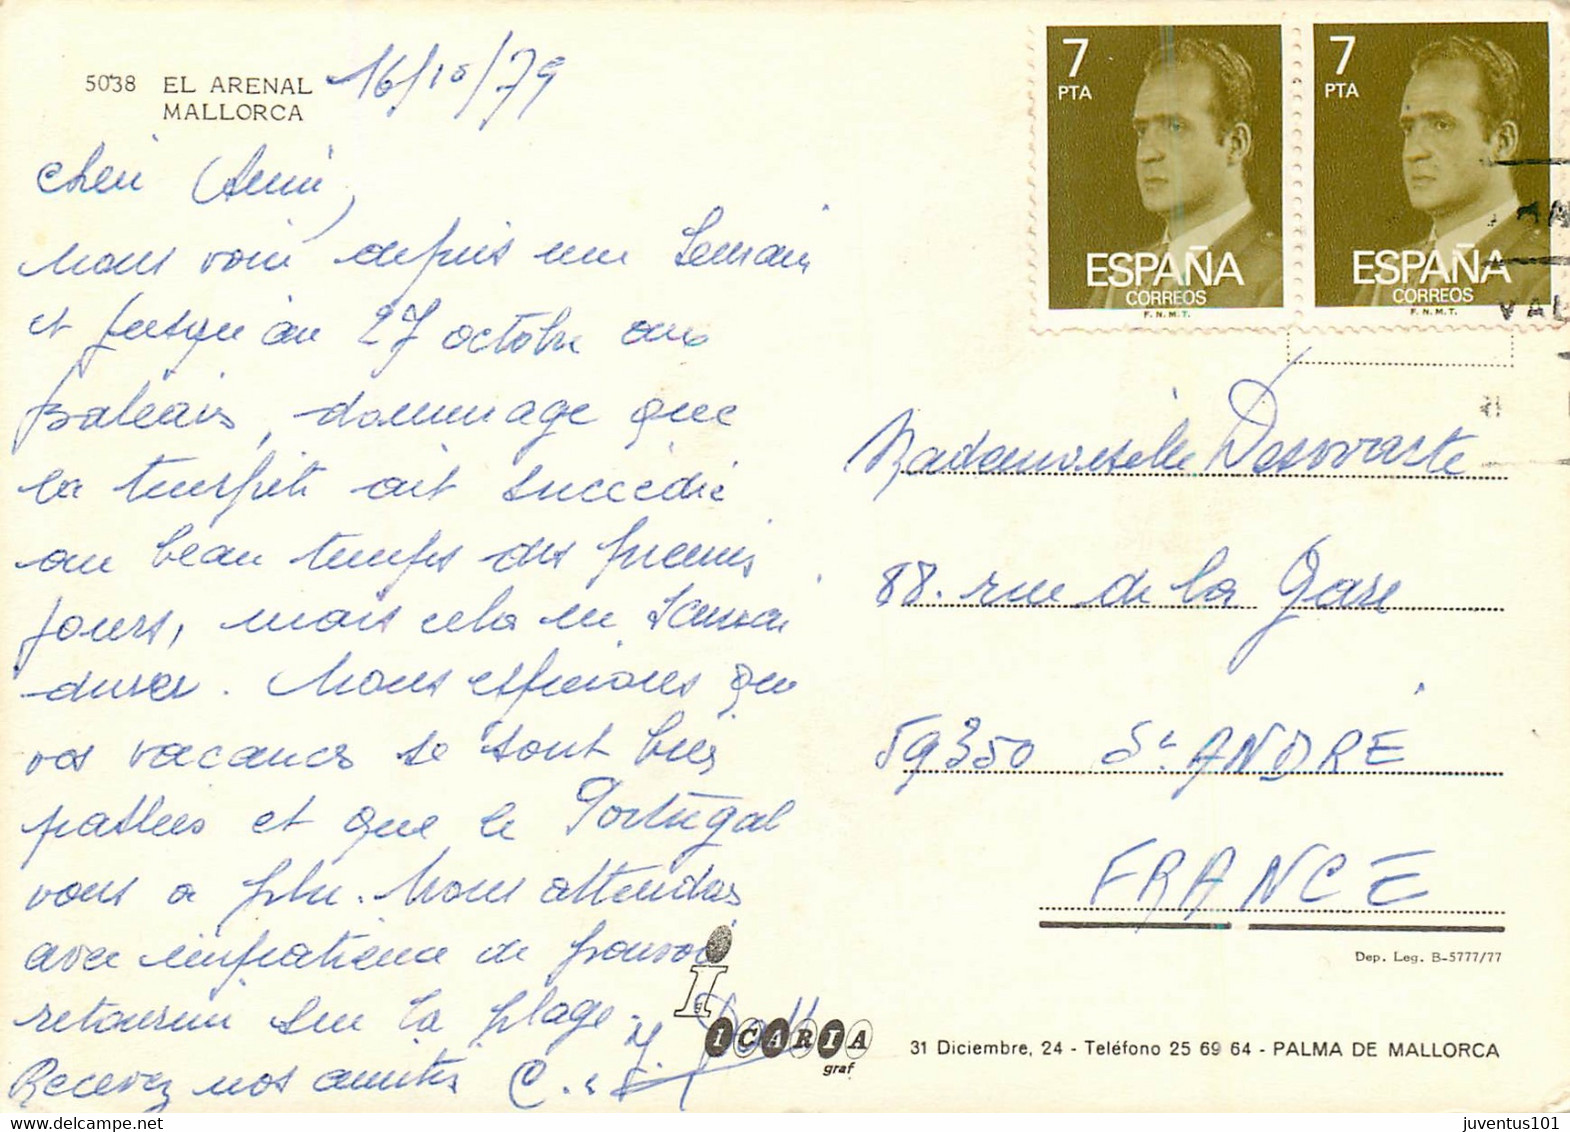 5038 EL ARENAL
MALLORCA
16/10/79
Cheri Ami,
Nous voici depuis une semaine
et jusqu'au 27 octobre aux
Baléares, dommage que
la tempête ait succédé
au beau temps des premiers
jours, mais cela ne saurai
durer. Nous espérons que
vos vacances se sont bien
passées et que le Portugal
vous a plu. Nous attendons
avec impatience de pouvoir
retourner sur la plage.
Recevez nos amitiés C. et J.
7
PTA
ESPAÑA
CORREOS
F.N.M.T.
7
PTA
ESPAÑA
CORREOS
F.N.M.T.
Mademoiselle
88. rue de la Gare
59350 St ANDRE
FRANCE
Dep. Leg. B-5777/77
ICARIA
graf
31 Diciembre, 24 - Teléfono 25 69 64 - PALMA DE MALLORCA
juventus101